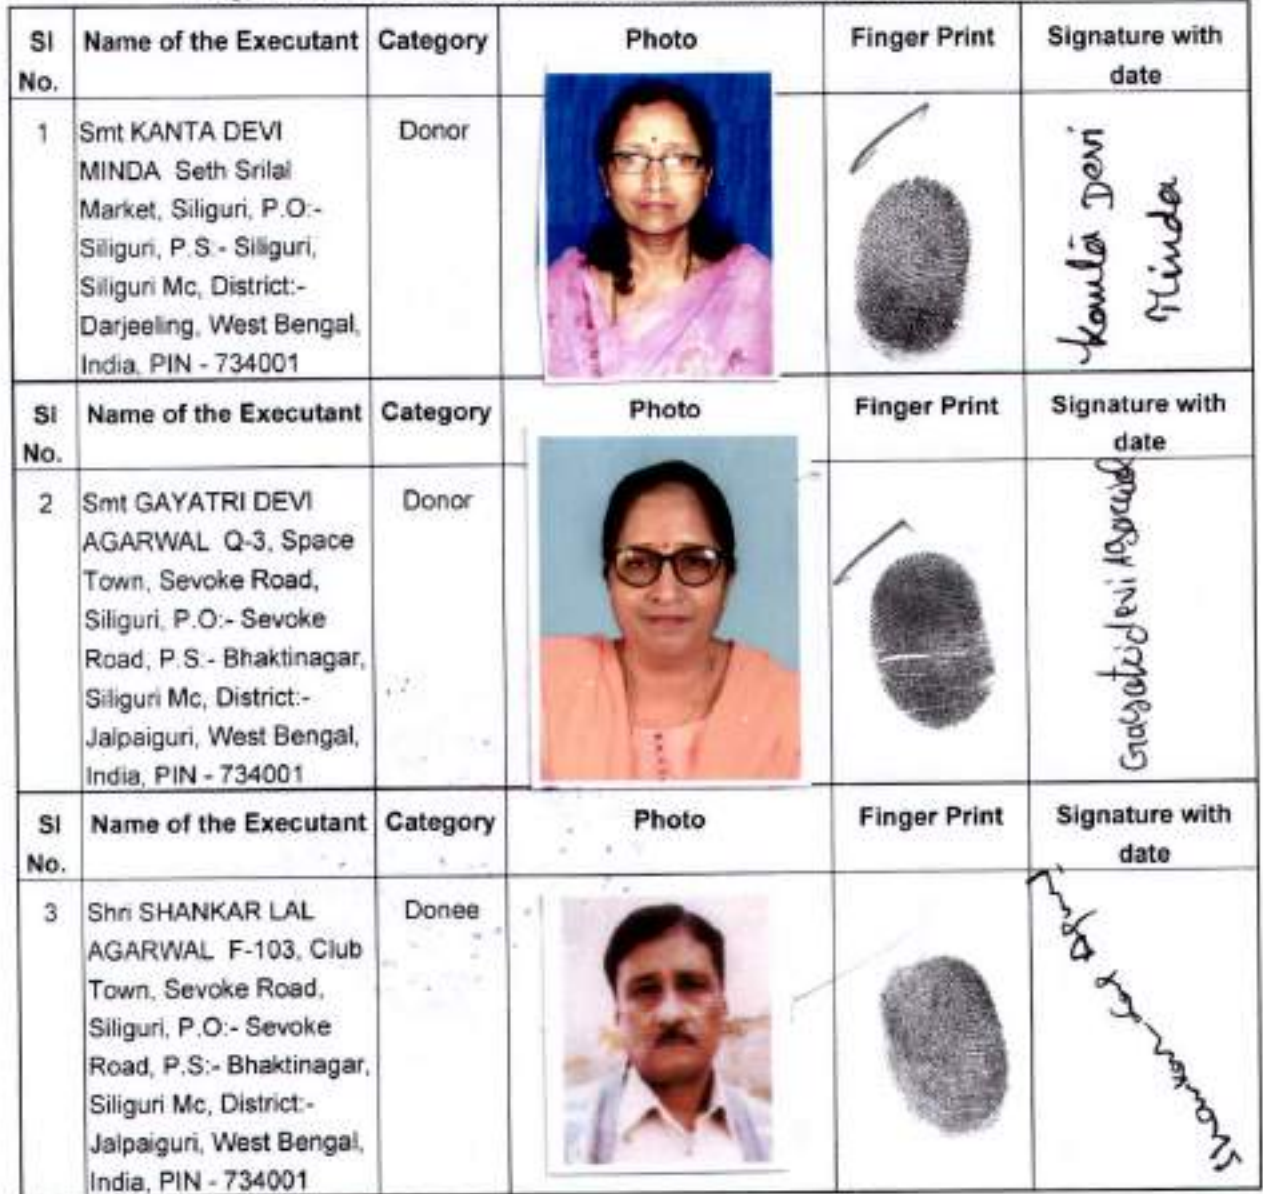 SI No. Name of the Executant Category Photo Finger Print Signature with date
1 Smt KANTA DEVI Donor
MINDA Seth Srilal
Market, Siliguri, P.O:-
Siliguri, P.S:- Siliguri,
Siliguri Mc, District:-
Darjeeling, West Bengal,
India, PIN - 734001
Kanta Devi
Minda
SI No. Name of the Executant Category Photo Finger Print Signature with date
2 Smt GAYATRI DEVI Donor
AGARWAL Q-3, Space
Town, Sevoke Road,
Siliguri, P.O:- Sevoke
Road, P.S:- Bhaktinagar,
Siliguri Mc, District:-
Jalpaiguri, West Bengal,
India, PIN - 734001
Gayatri devi Agarwal
SI No. Name of the Executant Category Photo Finger Print Signature with date
3 Shri SHANKAR LAL Donee
AGARWAL F-103, Club
Town, Sevoke Road,
Siliguri, P.O:- Sevoke
Road, P.S:- Bhaktinagar,
Siliguri Mc, District:-
Jalpaiguri, West Bengal,
India, PIN - 734001
Shankar Lal